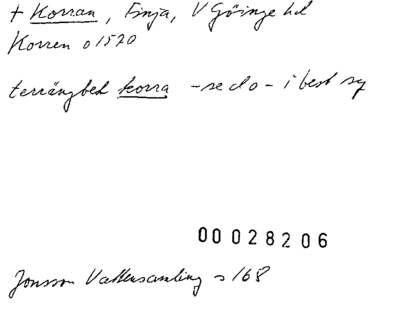 + Korran, Finja, V Göinge hd
Korren o 1570
terrängbet korra - se do - i best sg
00028206
Jonsson Vattensamling s 168